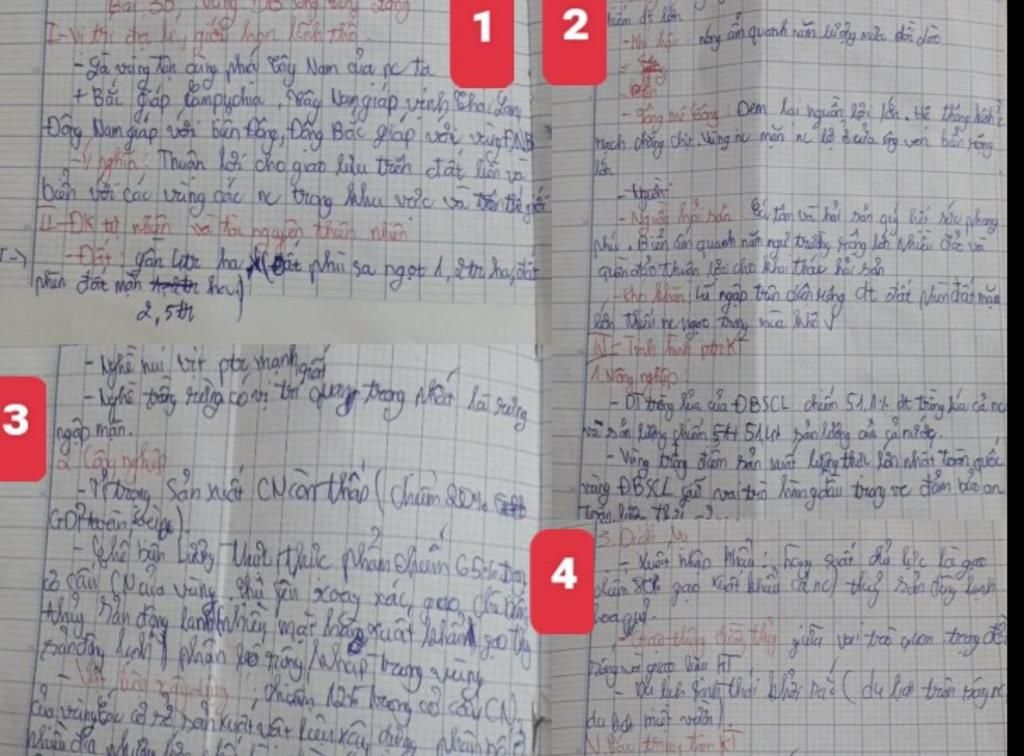 1
Bài 35 vùng ĐB sông
I-Vị trí địa lí, giới hạn lãnh thổ
- Là vùng tận cùng phía Tây Nam của nc ta
+ Bắc giáp Campuchia, Tây Nam giáp vịnh Thái Lan
Đông Nam giáp với biển Đông, Đông Bắc giáp với vùng ĐNB
- Ý nghĩa: Thuận lợi cho giao lưu trên đất liền và
biển với các vùng các nc trong khu vực và thế giới
II-ĐK tự nhiên và tài nguyên thiên nhiên
- Đất: gần 4tr ha (đất phù sa ngọt 1,2tr ha, đất
phèn đất mặn ha)
2,5tr
2
- Khí hậu: nóng ẩm quanh năm lượng mưa dồi dào
- Sông mê Công: Đem lại nguồn lợi lớn. Hệ thống kênh
rạch chằng chịt. Vùng nc mặn nc lợ ở cửa sông ven biển rộng
lớn
- Nguồn hải sản: cá tôm và hải sản quý hết sức phong
phú. Biển ấm quanh năm ngư trường rộng lớn nhiều đảo và
quần đảo thuận lợi cho khai thác hải sản
- Khó khăn: lũ ngập trên diện rộng dt đất phèn đất mặn
lớn thiếu nc ngọt trong mùa khô
IV-Tình hình ptr KT
1. Nông nghiệp
- DT trồng lúa của ĐBSCL chiếm 51,1% dt trồng lúa cả nc
và sản lượng chiếm 51,4% sản lượng của cả nước.
- Vùng trọng điểm sản xuất lương thực lớn nhất toàn quốc
vùng ĐBSCL giữ vai trò hàng đầu trong vc đảm bảo an
3
- Nghề nuôi vịt ptr mạnh
- Nghề trồng rừng có vị trí quan trọng nhất là rừng
ngập mặn.
2. Công nghiệp
- Tỉ trọng sản xuất CN còn thấp (chiếm 20%
GDP toàn vùng).
- Chế biến lương thực thực phẩm chiếm 65% trong
cơ cấu CN của vùng. chủ yếu xay xát gạo,
thuỷ sản đông lạnh nhiều mặt hàng xuất khẩu gạo thuỷ
sản đông lạnh phân bố rộng khắp trong vùng
- Vật liệu xây dựng: chiếm 12% trong cơ cấu CN
của vùng các cơ sở sản xuất vật liệu xây dựng phân bố ở
nhiều địa phương
4
3. Dịch vụ
- Xuất nhập khẩu: hàng xuất chủ lực là gạo
chiếm 80% gạo xuất khẩu cả nc) thuỷ sản đông lạnh
hoa quả.
- Giao thông đường thuỷ giữ vai trò quan trọng
sống và giao lưu KT
- Du lịch sinh thái khởi sắc (du lịch trên sông nc
du lịch miệt vườn).
V Các trung tâm KT